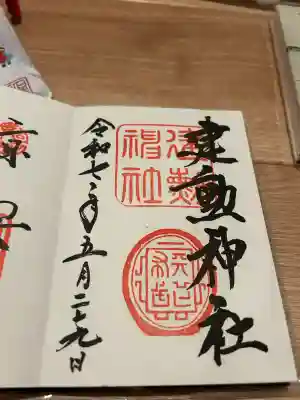 建勲神社
建勲
神社
令和七年五月二十九日